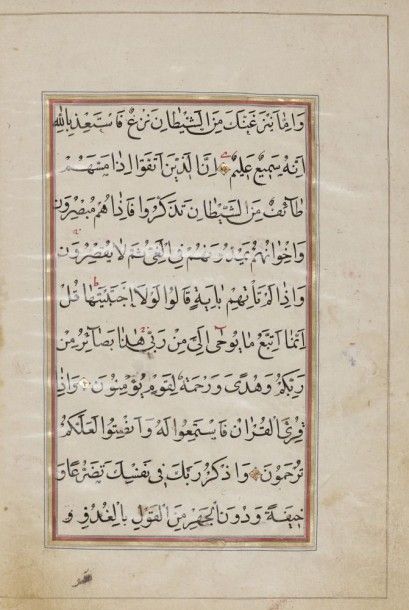 وَاِمَّا يَنْزَغَنَّكَ مِنَ الشَّيْطَانِ نَزْغٌ فَاسْتَعِذْ بِاللّٰهِ
اِنَّهُ سَمِيعٌ عَلِيمٌ اِنَّ الَّذِينَ اتَّقَوْا اِذَا مَسَّهُمْ
طَائِفٌ مِنَ الشَّيْطَانِ تَذَكَّرُوا فَاِذَا هُمْ مُبْصِرُونَ
وَاِخْوَانُهُمْ يَمُدُّونَهُمْ فِي الْغَيِّ ثُمَّ لَا يُقْصِرُونَ
وَاِذَا لَمْ تَأْتِهِمْ بِاٰيَةٍ قَالُوا لَوْلَا اجْتَبَيْتَهَا قُلْ
اِنَّمَا اَتَّبِعُ مَا يُوحٰى اِلَيَّ مِنْ رَبِّي هٰذَا بَصَائِرُ مِنْ
رَبِّكُمْ وَهُدًى وَرَحْمَةٌ لِقَوْمٍ يُؤْمِنُونَ وَاِذَا
قُرِئَ الْقُرْاٰنُ فَاسْتَمِعُوا لَهُ وَاَنْصِتُوا لَعَلَّكُمْ
تُرْحَمُونَ وَاذْكُرْ رَبَّكَ فِي نَفْسِكَ تَضَرُّعًا وَ
خِيفَةً وَدُونَ الْجَهْرِ مِنَ الْقَوْلِ بِالْغُدُوِّ وَ